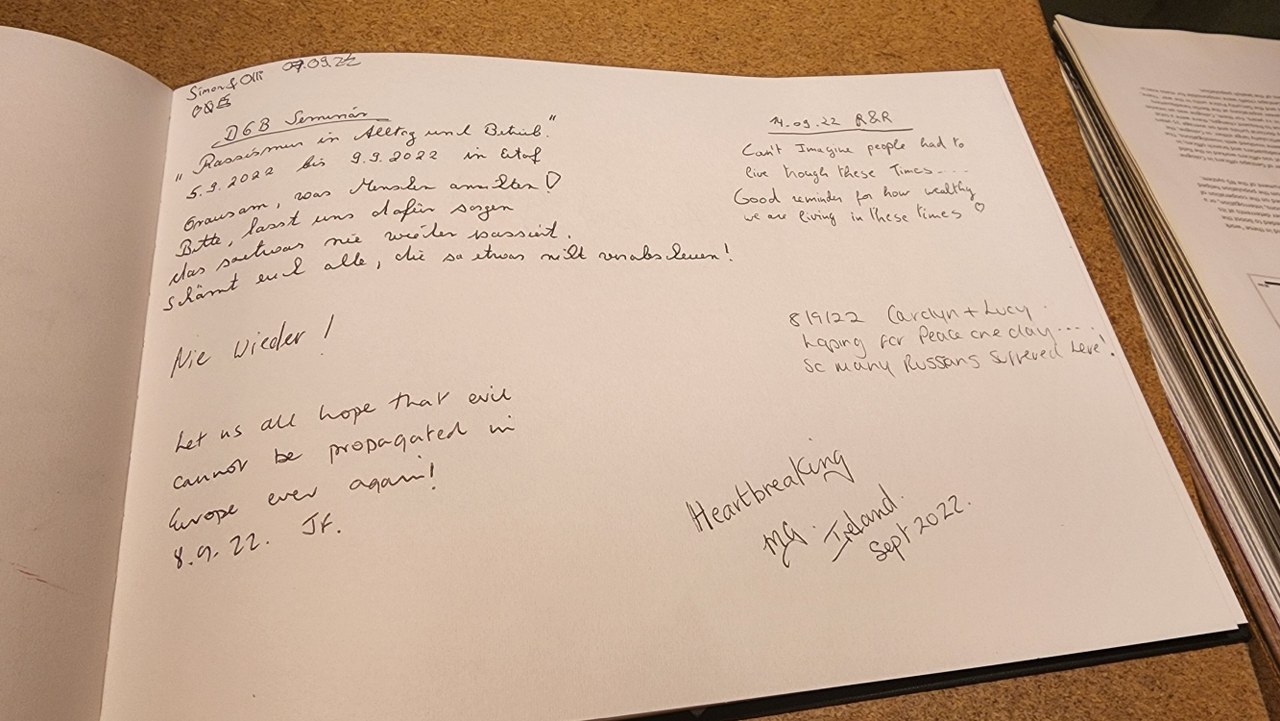 Simon & Olli 07.09.22
DGB Seminar
"Rassismus in Alltag und Betrieb."
5.9.2022 bis 9.9.2022 in
Grausam, was Menschen anrichten
Bitte, lasst uns dafür sorgen
das soetwas nie wieder passiert.
Schämt euch alle, die so etwas nicht verabscheuen!
Nie wieder!
Let us all hope that evil
cannot be propagated in
Europe ever again!
8.9.22. JF.
14.09.22 R&R
Can't Imagine people had to
live trough these Times....
Good reminder for how wealthy
we are living in these times ♡
8/9/22 Carolyn + Lucy.
hoping for Peace one day....
so many Russans suffered here!.
Heartbreaking
MG. Ireland.
Sept 2022.